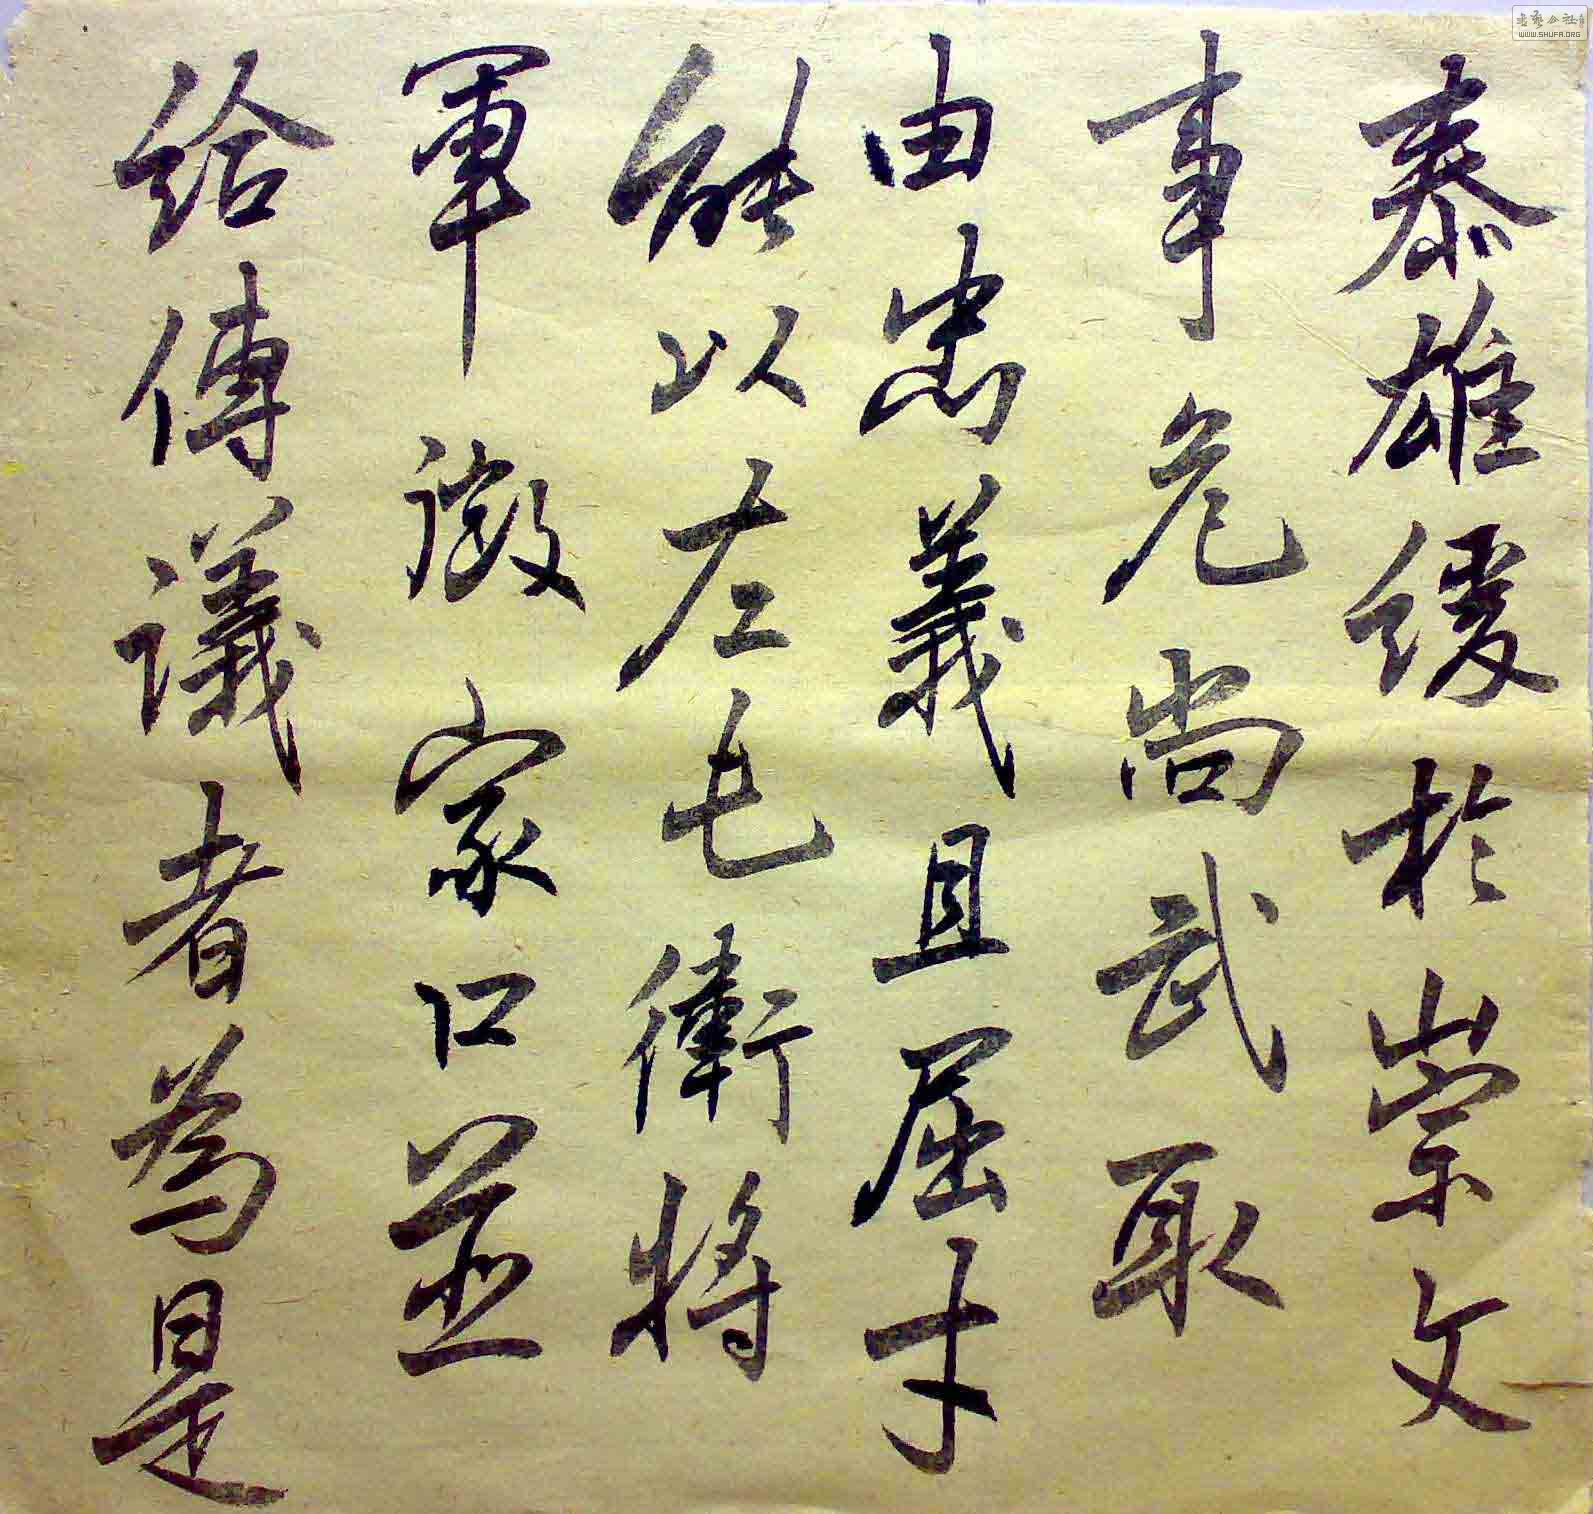 泰雄緩於崇文
事危尚武取
由忠義且屈才
能以左屯衛將
軍徵家口並
給傳議者為是
書藝公社
WWW.SHUFA.ORG